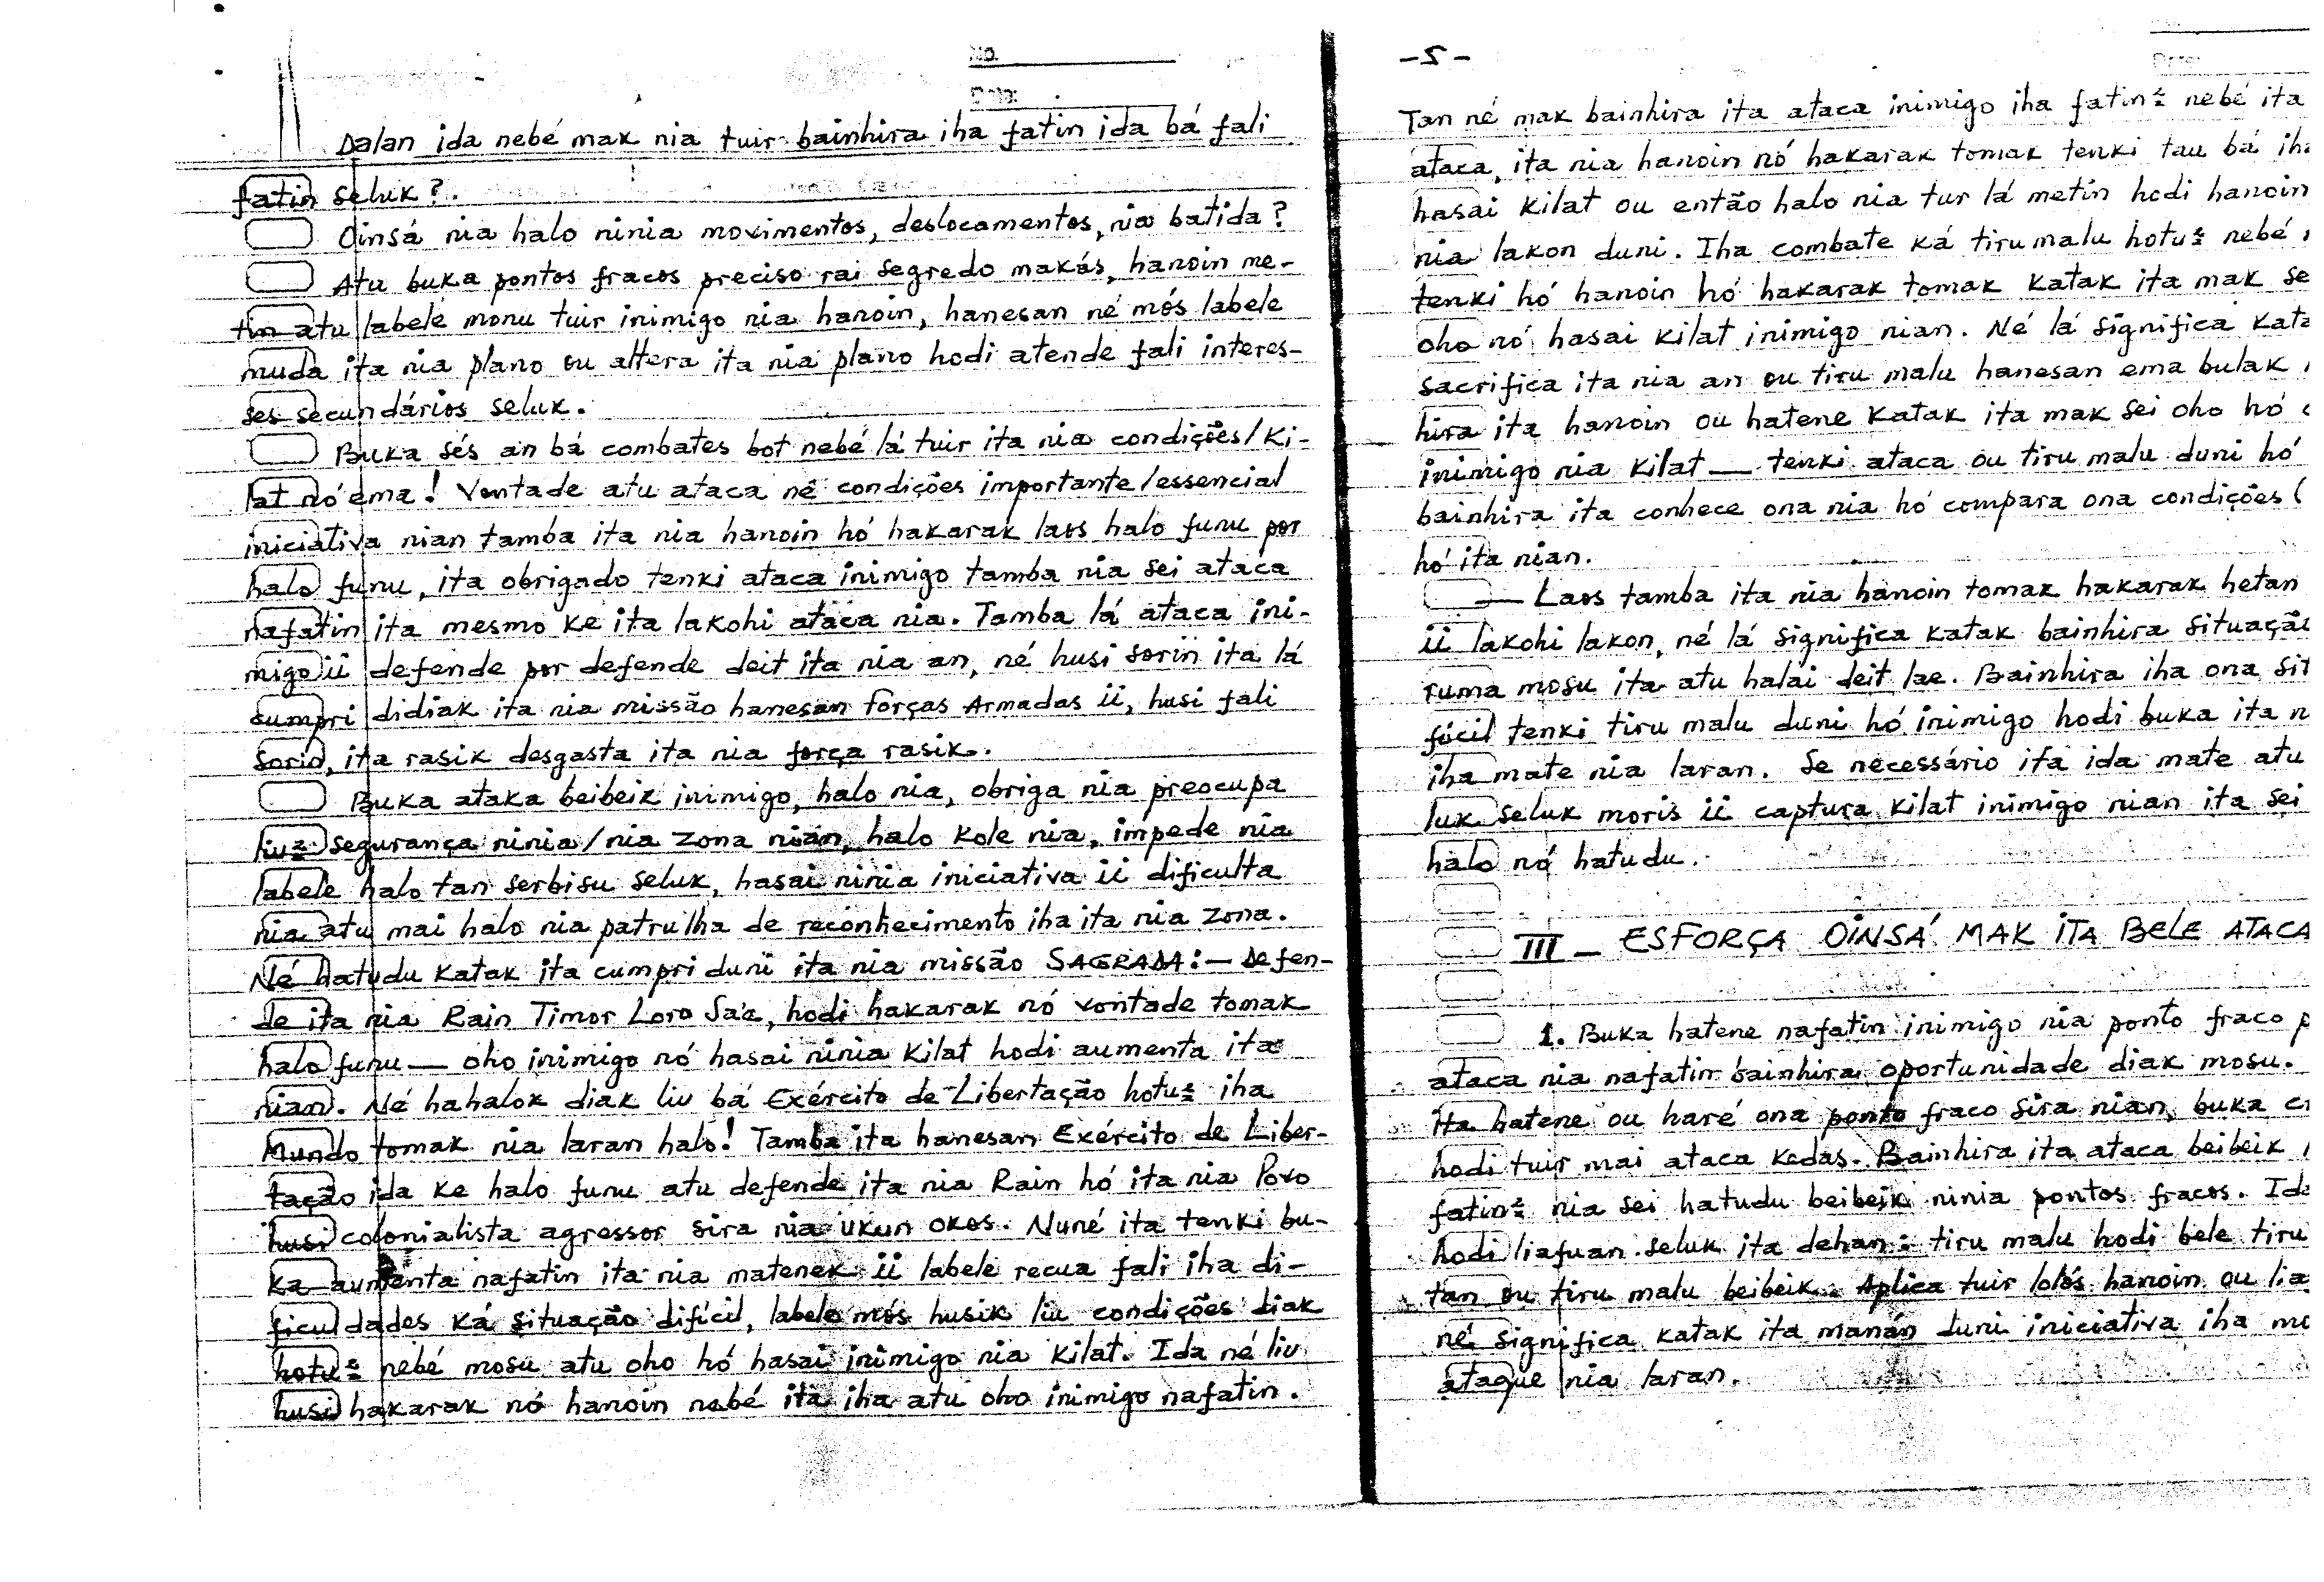 No.
Date:
Dalan ida nebé mak nia tuir bainhira iha fatin ida bá fali
fatin seluk?.
Oinsá nia halo ninia movimentos, deslocamentos, nia batida?
Atu buka pontos fracos preciso rai segredo makás, hanoin me-
tin atu labele monu tuir inimigo nia hanoin, hanesan né mós labele
muda ita nia plano ou altera ita nia plano hodi atende fali interes-
ses secundários seluk.
Buka sés an bá combates bot nebé lá tuir ita nia condições/Ki-
lat nó ema! Vontade atu ataca né condições importante/essencial
iniciativa nian tamba ita nia hanoin hó hakarak laos halo funu por
halo funu, ita obrigado tenki ataca inimigo tamba nia sei ataca
nafatin ita mesmo ke ita lakohi ataca nia. Tamba lá ataca ini-
migo ii defende por defende deit ita nia an, né husi sorin ita lá
cumpri didiak ita nia missão hanesan Forças Armadas ii, husi fali
sorin, ita rasik desgasta ita nia força rasik.
Buka ataka beibeik inimigo, halo nia, obriga nia preocupa
liu= segurança ninia/nia zona nian, halo kole nia, impede nia
labele halo tan serbisu seluk, hasai ninia iniciativa ii dificulta
nia atu mai halo nia patrulha de reconhecimento iha ita nia zona.
Né hatudu katak ita cumpri duni ita nia missão SAGRADA:— Defen-
de ita nia Rain Timor Loro Sa'e, hodi hakarak nó vontade tomak
halo funu — oho inimigo nó hasai ninia kilat hodi aumenta ita
nian. Né hahalok diak liu bá Exército de Libertação hotu= iha
Mundo tomak nia laran halo! Tamba ita hanesan Exército de Liber-
tação ida ke halo funu atu defende ita nia Rain hó ita nia Povo
husi colonialista agressor sira nia ukun okos. Nuné ita tenki bu-
ka aumenta nafatin ita nia matenek ii labele recua fali iha di-
ficuldades ká situação difícil, labele mós husik liu condições diak
hotu= nebé mosu atu oho hó hasai inimigo nia kilat. Ida né liu
husi hakarak nó hanoin nebé ita iha atu oho inimigo nafatin.
-5-
Tan né mak bainhira ita ataca inimigo iha fatin= nebé ita
ataca, ita nia hanoin nó hakarak tomak tenki tau bá iha
hasai kilat ou então halo nia tur lá metin hodi hanoin
nia lakon duni. Iha combate ká tiru malu hotu= nebé
tenki hó hanoin hó hakarak tomak katak ita mak se
oho nó hasai kilat inimigo nian. Né lá significa kata
sacrifica ita nia an ou tiru malu hanesan ema bulak
hira ita hanoin ou hatene katak ita mak sei oho hó
inimigo nia kilat — tenki ataca ou tiru malu duni hó
bainhira ita conhece ona nia hó compara ona condições (
hó ita nian.
— Laos tamba ita nia hanoin tomak hakarak hetan
ii lakohi lakon, né lá significa katak bainhira situação
ruma mosu ita atu halai deit lae. Bainhira iha ona sit
fácil tenki tiru malu duni hó inimigo hodi buka ita n
iha mate nia laran. Se necessário ita ida mate atu
luk seluk moris ii captura kilat inimigo nian ita sei
halo nó hatudu.
III — ESFORÇA OINSÁ MAK ITA BELE ATACA
1. Buka hatene nafatin inimigo nia ponto fraco p
ataca nia nafatin bainhira oportunidade diak mosu.
Ita hatene ou haré ona ponto fraco sira nian, buka
hodi tuir mai ataca kedas. Bainhira ita ataca beibeik
fatin= nia sei hatudu beibeik ninia pontos fracos. Ida
hodi liafuan seluk ita dehan: tiru malu hodi bele tiru
tan ou tiru malu beibeik. Aplica tuir lolós hanoin ou lia
né significa katak ita manán duni iniciativa iha mo
ataque nia laran.